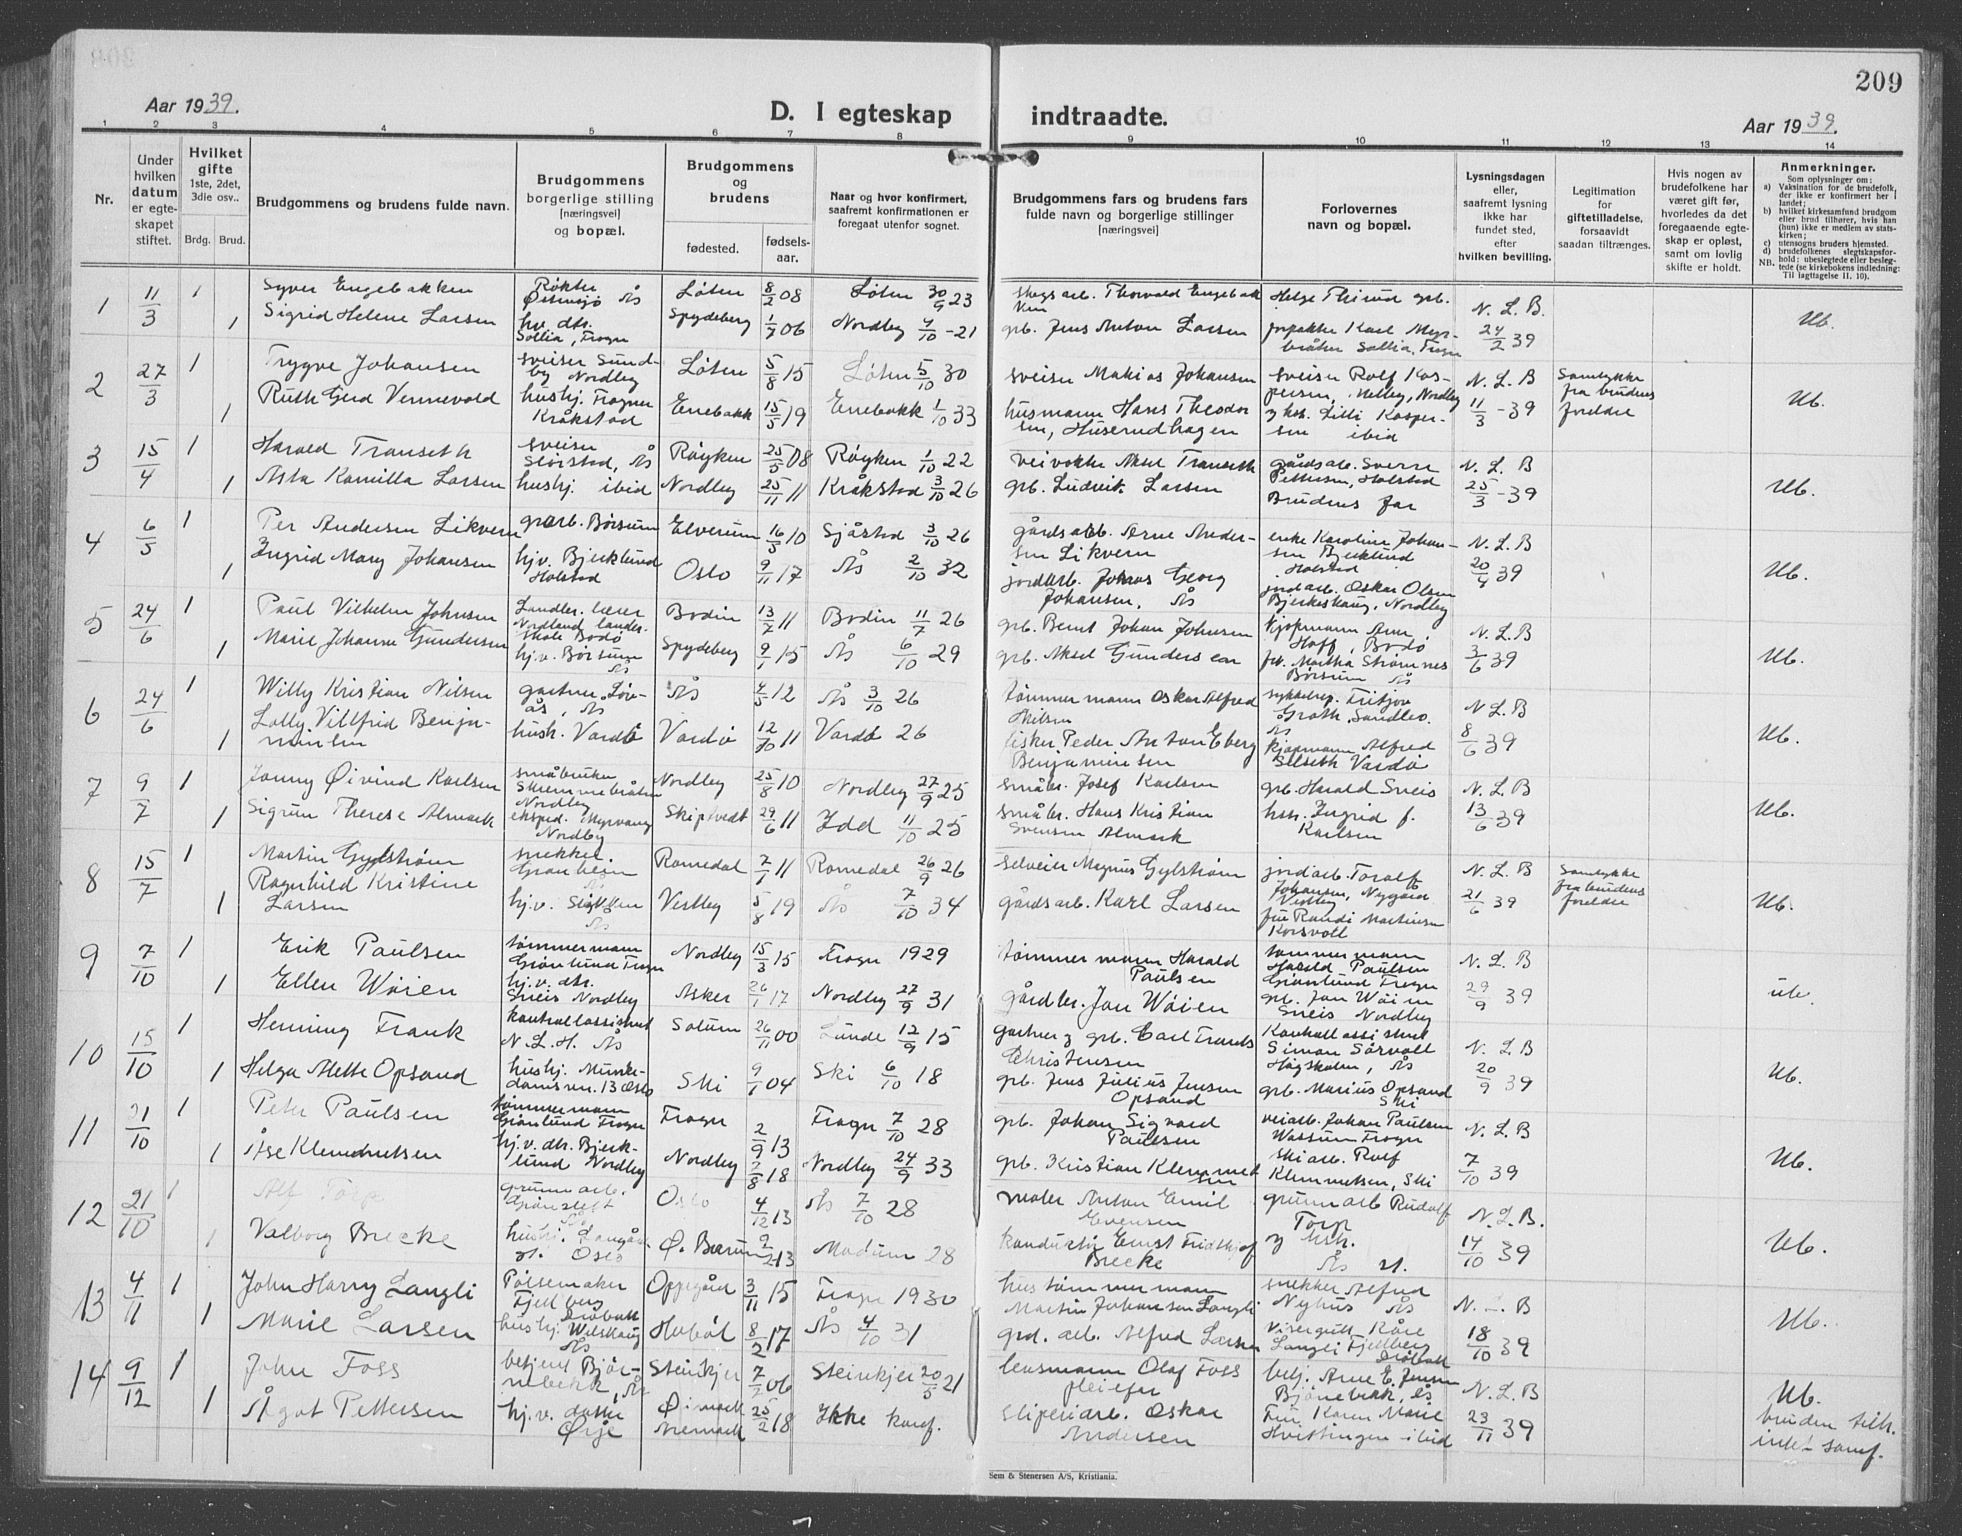 209
Aar 1939.
D. I egteskap indtraadte.
Aar 1939.
1 2 3 4 5 6 7 8 9 10 11 12 13 14
Nr.
Under hvilken datum er egteskapet stiftet.
Hvilket gifte 1ste, 2det, 3die osv..
Brdg. Brud.
Brudgommens og brudens fulde navn.
Brudgommens borgerlige stilling [næringsvei] og bopæl.
Brudgommens og brudens
fødested.
fødselsaar.
Naar og hvor konfirmert, saafremt konfirmationen er foregaat utenfor sognet.
Brudgommens fars og brudens fars fulde navn og borgerlige stillinger [næringsvei]
Forlovernes navn og bopæl.
Lysningsdagen eller, saafremt lysning ikke har fundet sted, efter hvilken bevilling.
Legitimation for giftetilladelse, forsaavidt saadan tiltrænges.
Hvis nogen av brudefolkene har været gift før, hvorledes da det foregaaende egteskap er opløst, samt om lovlig skifte er holdt.
Anmerkninger.
Som oplysninger om:
a) Vaksination for de brudefolk, der ikke er konfirmert her i landet;
b) hvilket kirkesamfund brudgom eller brud tilhører, hvis han (hun) ikke er medlem av statskirken;
c) utensogns bruders hjemsted.
d) brudefolkenes slegtskapsforhold: ubeslegtede eller beslegtede (se kirkebokens indledning: Til Iagttagelse II, 10).
NB.
1 11/3 1 Syver Engebakken Røkter Østensjø Ås Løten 8/2 08 Løten 30/9 23 skogsarb. Thorvald Engebakken Helge Thirud grb. N. L. B. Ub.
1 Sigrid Helene Larsen hv. dtr. Sollia, Frogn Spydeberg 1/7 06 Nordby 4/10 - 21 grb. Jens Anton Larsen forpakter Karl Myrbråten Sollia, Frogn 24/2 39
2 27/3 1 Trygve Johansen sveiser Sundby Nordby Løten 5/8 15 Løten 5/10 30 sveiser Matias Johansen sveiser Rolf Kaspersen, Melby, Nordby N. L. B Samtykke fra brudens foreldre Ub.
1 Ruth Gerd Vennevold hushj. Frogner Kråkstad Enebakk 15/5 19 Enebakk 1/10 33 husmann Hans Theodorsen, Huserudhagen og hst. Lilli Kaspersen ibid 11/3 - 39
3 15/4 1 Harald Transeth sveiser Størstad, Ås Røyken 25/5 08 Røyken 1/10 22 veivokter Aksel Transeth gårdsarb. Sverre Pettersen, Holstad N. L. B Ub.
1 Asta Kamilla Larsen hushj. ibid Nordby 25/11 11 Kråkstad 3/10 26 grb. Ludvik Larsen Brudens far 25/3 - 39
4 6/5 1 Per Andersen Likvern grarb. Børsum Elverum 16/5 10 Sjåstad 3/10 26 gårdsarb. Arne Andersen Likvern enke Karoline Johansen Bjerklund Holstad N. L. B Ub.
1 Ingrid Mary Johansen hj.v. Bjerklund Holstad Oslo 9/11 17 Ås 2/10 32 jordarb. Johas Georg Johansen, Ås jordarb. Oskar Olsen Bjerkeskaug, Nordby 20/4 39
5 24/6 1 Paul Vilhelm Johnsen Landbr. lærer Nordland landbr. skole Bodø Bodin 13/7 11 Bodin 11/7 26 grb. Bernt Johan Johnsen kjøpmann Arne Hoff, Bodø N. L. B Ub.
1 Marie Johanne Gundersen hj.v. Børsum Ås Spydeberg 9/1 15 Ås 6/10 29 grb. Aksel Gundersen frk. Martha Strømnes Børsum Ås 3/6 39
6 24/6 1 Willy Kristian Nilsen gartner Løvås, Ås Ås 4/5 12 Ås 3/10 26 tømmermann Oskar Alfred Nilsen sykkelrep. Fritjov Grøth, Sandbo. Ås N. L. B Ub.
1 Lolly Villfrid Benjaminsen hush. Vardö Vardö 12/10 11 Vardö 26 fisker Peder Anton Eberg Benjaminsen kjøpmann Alfred Selseth Vardö 8/6 39
7 9/7 1 Jonny Øivind Karlsen småbruker Skremmebråten Nordby Nordby 25/8 10 Nordby 27/9 25 småbr. Josef Karlsen grb. Harald Sneis N. L. B Ub.
1 Sigrun Therese Almark eksped. Myrvang Nordby Skiptvedt 29/6 11 Idd 11/10 25 småbr. Hans Kristian Svensen Almark hstr. Ingrid f. Karlsen 13/6 39
8 15/7 1 Martin Gylstrøm snekker. Grønheim Ås Romedal 7/1 11 Romedal 26/9 26 selveier Magnus Gylstrøm jordarb. Toralf Johansen, Nygård Vestby N. L. B Samtykke fra brudens foreldre Ub.
1 Ragnhild Kristine Larsen hj.v. Ås Vestby 5/8 19 Ås 7/10 34 gårdsarb. Karl Larsen fru Randi Martinsen Korsvoll 21/6 39
9 7/10 1 Erik Paulsen tømmermann Grønlund Frogn Nordby 15/3 15 Frogn 1929 tømmermann Harald Paulsen tømmermann Harald Paulsen Grønlund Frogn N. L. B ub.
1 Ellen Wøien hj.v. dtr. Sneis Nordby Asker 26/1 17 Nordby 27/9 31 gårdbr. Jan Wøien grb. Jan Wøien Sneis Nordby 29/9 39
10 15/10 1 Henning Frank kontrollassistent N. L. H. Ås Solum 26/11 00 Lunde 12/9 15 gartner og grb. Carl Frands Christensen Kontrollassistent Simon Sørvoll Høgskolen, Ås N. L. B Ub.
1 Helga Mette Opsand hushj. Munkedamsvn. 13 Oslo Ski 9/1 04 Ski 6/10 18 grb. Jens Julius Jensen Opsand grb. Marius Opsand Ski 20/9 39
11 21/10 1 Peter Paulsen tømmermann Grønlund Frogn Frogn 2/9 13 Frogn 7/10 28 grb. Johan Sigvard Paulsen veiarb. Johan Paulsen Wassum Frogn N. L. B Ub.
1 Åse Klemetsen hj.v. dtr. Bjerklund Nordby Nordby 2/8 18 Nordby 24/9 33 grb. Kristian Klemmetsen skiarb. Rolf Klemmetsen, Ski 7/10 39
12 21/10 1 Alf Torp grunnarb. Grønsleft Ås Oslo 4/12 13 Ås 7/10 28 maler Anton Emil Evensen grunnarb Rudolf Torp N. L. B. Ub.
1 Valborg Brecke hushj. Oslo Ø. Bærum 9/2 13 Modum 28 konduktør Ernst Fridthjof Brecke og hstr. Ås st. 14/10 39
13 4/11 1 John Harry Langli Pølsemaker Fjellberg Drøbak Oppegård 3/11 15 Frogn 1930 hustømmermann Martin Johansen Langli snekker Alfred Nyhus Ås N. L. B Ub.
1 Marie Larsen hushj. Wilskaug Ås Hobøl 8/2 17 Ås 4/10 31 grd. arb. Alfred Larsen Visergutt Kåre Langli Fjellberg Drøbak 18/10 39
14 9/12 1 John Foss betjent Bjørnebekk, Ås Steinkjer 7/7 06 Steinkjer 20/5 21 lensmann Olaf Foss pleiefar betj. Arne E. Jensen Bjørnebekk, Ås N. L. B Ub.
1 Ågot Pettersen hj.v. datter Ørje Øimark Aremark 25/2 18 Ikke konf. sliperiarb. Oskar Andersen Fru Karen Marie Hvittingen ibid 23/11 39 bruden tilh. intet samf.
Sem & Stenersen A/S, Kristiania.